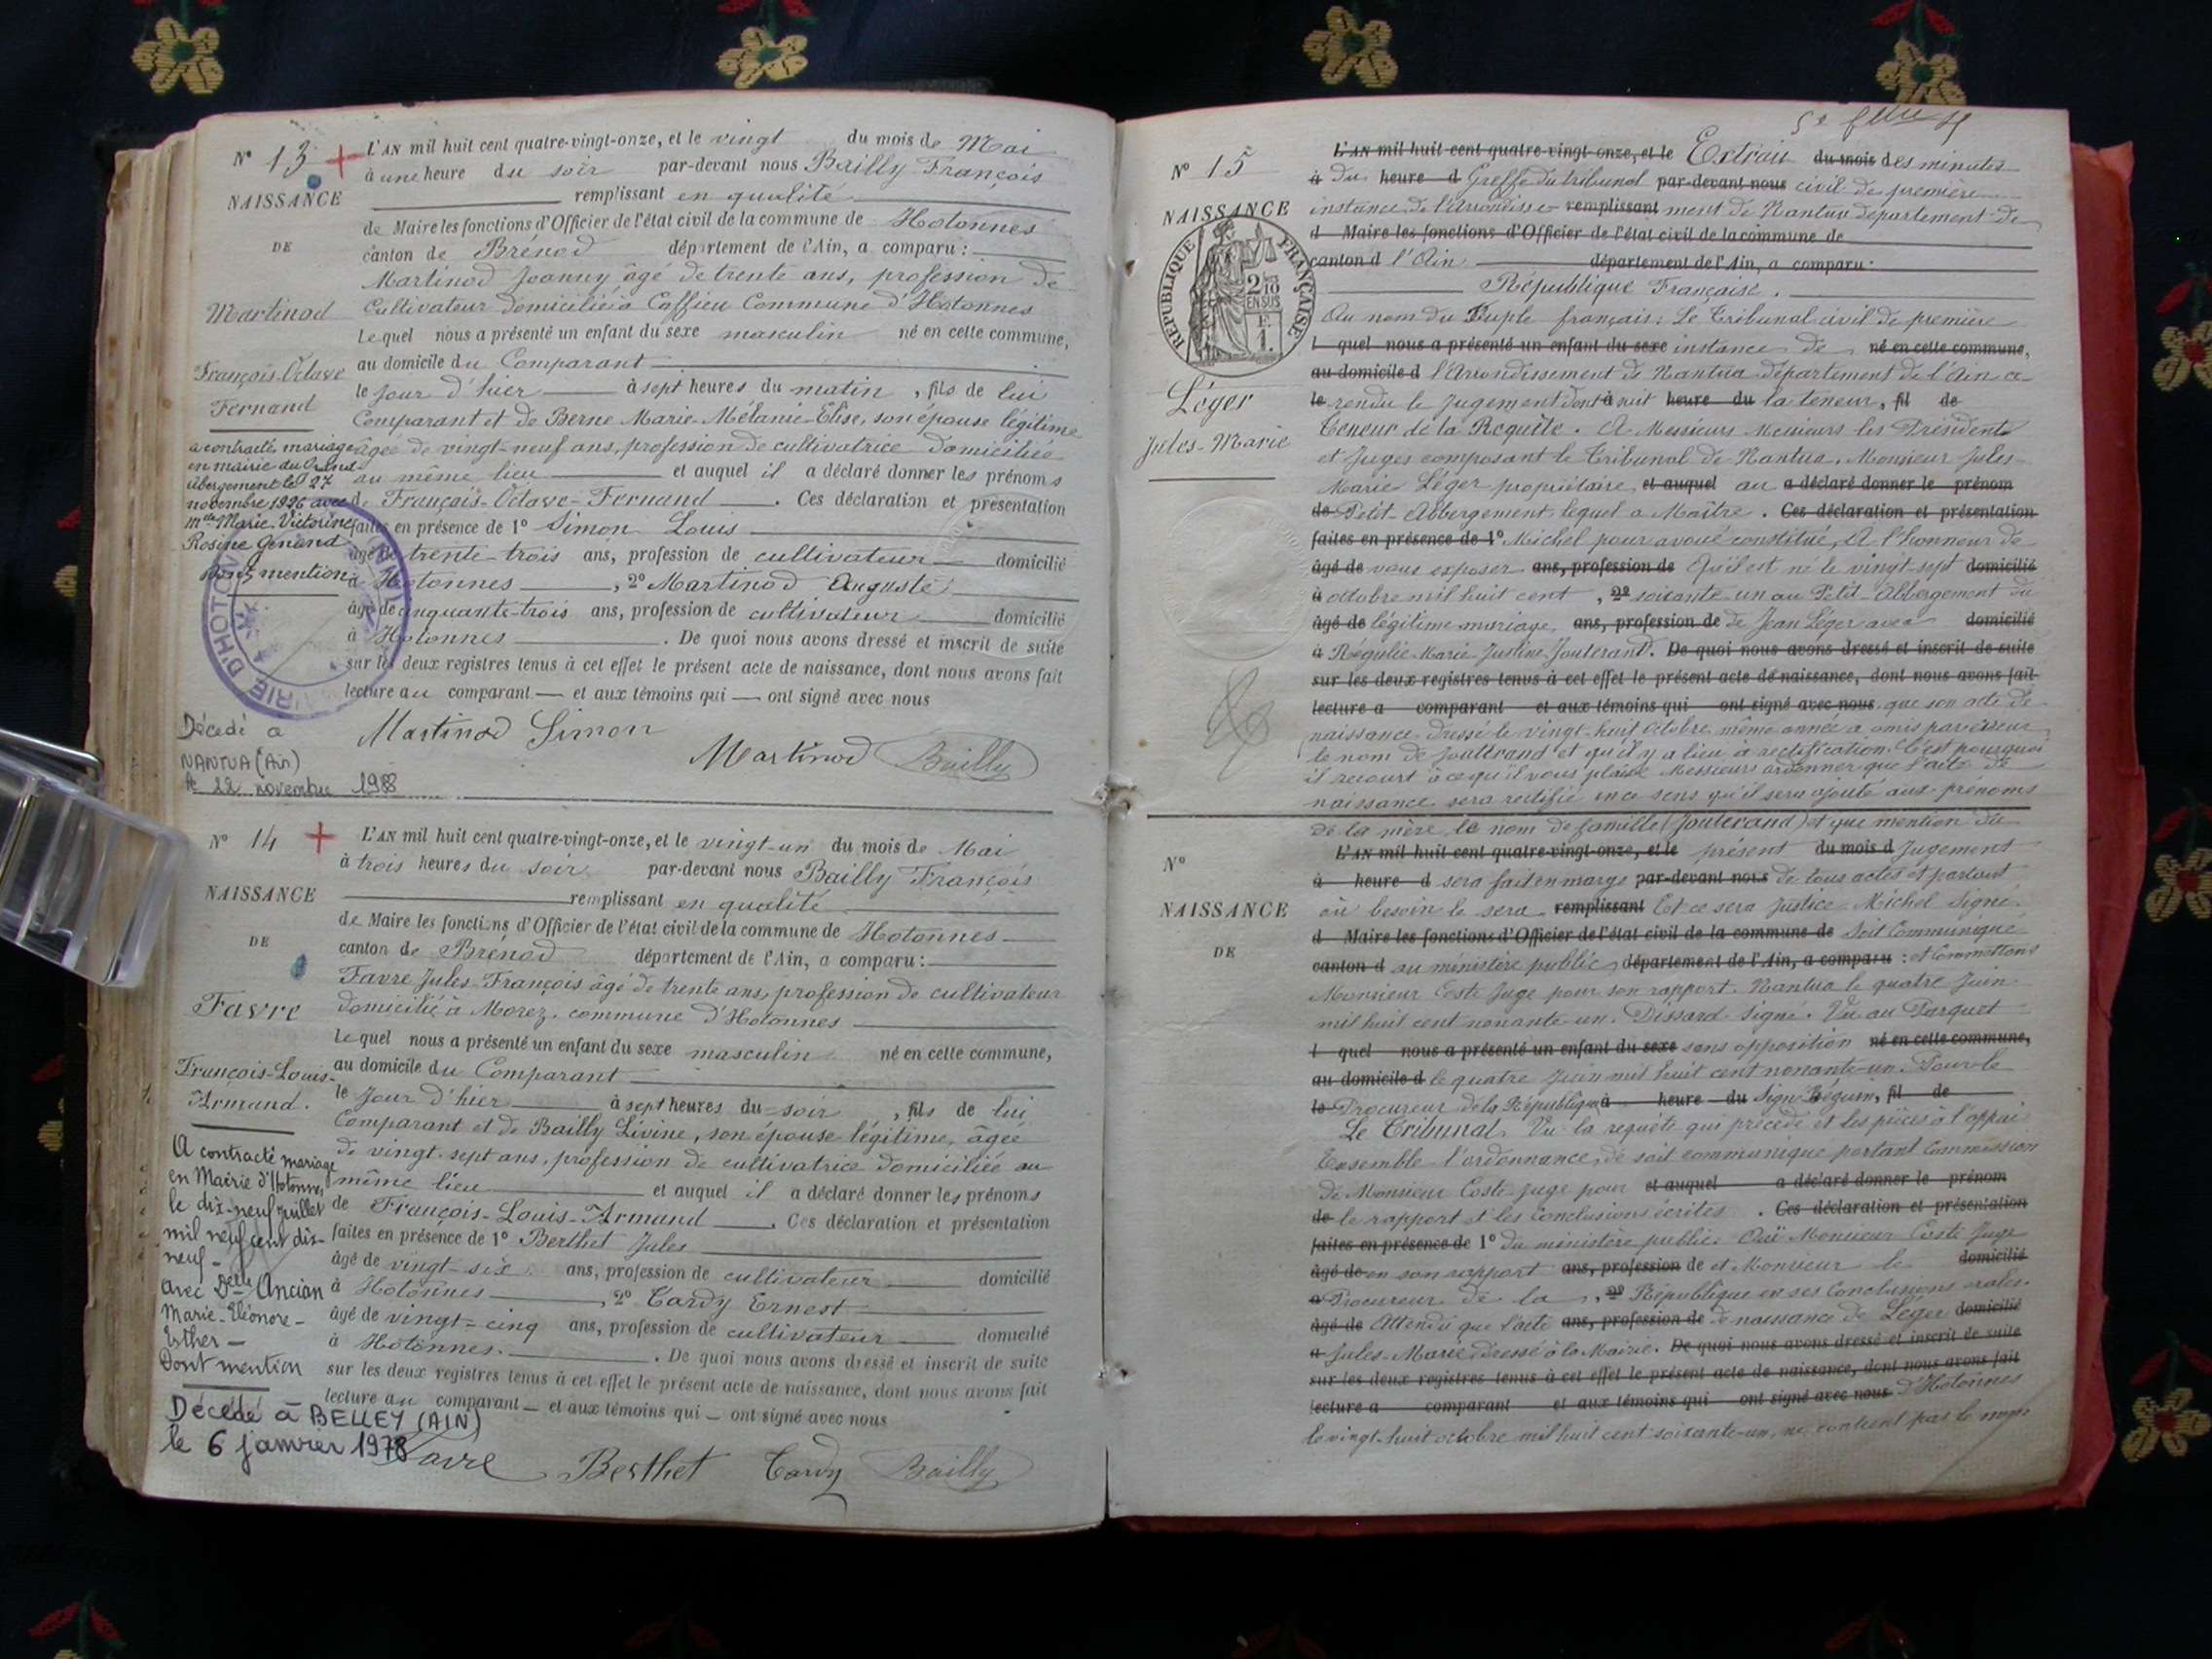 N° 13 +
NAISSANCE
DE
Martinod
François-Octave
Fernand
a contracté mariage
en mairie du Grand-
Abergement le 27
novembre 1926 avec
Mlle Marie-Victorine
Rosine Genand
Dont mention
MAIRIE D'HOTONNES (AIN)
Décédé à
NANTUA (Ain)
le 22 novembre 1988
L'AN mil huit cent quatre-vingt-onze, et le vingt du mois de Mai
à une heure du soir par-devant nous Bailly François
remplissant en qualité
de Maire les fonctions d'Officier de l'état civil de la commune de Hotonnes
canton de Brénod département de l'Ain, a comparu :
Martinod Joanny âgé de trente ans, profession de
Cultivateur domicilié à Caffieu Commune d'Hotonnes
Lequel nous a présenté un enfant du sexe masculin né en cette commune,
au domicile du Comparant
le jour d'hier à sept heures du matin, fils de lui
Comparant et de Berne Marie-Mélanie-Elise, son épouse légitime
âgée de vingt-neuf ans, profession de cultivatrice domiciliée
au même lieu et auquel il a déclaré donner les prénoms
de François-Octave-Fernand. Ces déclaration et présentation
faites en présence de 1° Simon Louis
âgé de trente-trois ans, profession de cultivateur domicilié
à Hotonnes, 2° Martinod Auguste
âgé de cinquante-trois ans, profession de cultivateur domicilié
à Hotonnes. De quoi nous avons dressé et inscrit de suite
sur les deux registres tenus à cet effet le présent acte de naissance, dont nous avons fait
lecture au comparant — et aux témoins qui — ont signé avec nous
Martinod Simon
Martinod Bailly
N° 14 +
NAISSANCE
DE
Favre
François-Louis-
Armand.
A contracté mariage
en Mairie d'Hotonnes
le dix-neuf juillet
mil neuf cent dix-
neuf -
avec Delle Ancian
Marie-Eléonore-
Esther -
Dont mention
Décédé à BELLEY (AIN)
le 6 janvier 1978
L'AN mil huit cent quatre-vingt-onze, et le vingt-un du mois de Mai
à trois heures du soir par-devant nous Bailly François
remplissant en qualité
de Maire les fonctions d'Officier de l'état civil de la commune de Hotonnes
canton de Brénod département de l'Ain, a comparu :
Favre Jules-François âgé de trente ans, profession de cultivateur
domicilié à Morez, commune d'Hotonnes
Lequel nous a présenté un enfant du sexe masculin né en cette commune,
au domicile du Comparant
le jour d'hier à sept heures du soir, fils de lui
Comparant et de Bailly Livine, son épouse légitime, âgée
de vingt-sept ans, profession de cultivatrice domiciliée au
même lieu et auquel il a déclaré donner les prénoms
de François-Louis-Armand. Ces déclaration et présentation
faites en présence de 1° Berthet Jules
âgé de vingt-six ans, profession de cultivateur domicilié
à Hotonnes, 2° Tardy Ernest
âgé de vingt-cinq ans, profession de cultivateur domicilié
à Hotonnes. De quoi nous avons dressé et inscrit de suite
sur les deux registres tenus à cet effet le présent acte de naissance, dont nous avons fait
lecture au comparant — et aux témoins qui — ont signé avec nous
Favre Berthet Tardy Bailly
N° 15
NAISSANCE
RÉPUBLIQUE FRANÇAISE
2/10 EN SUS
F. 1.
Léger
Jules-Marie
L'AN mil huit cent quatre-vingt-onze, et le Extrait du mois des minutes
à du heure d Greffe du tribunal par-devant nous civil de première
instance de l'Arrondisse- remplissant ment de Nantua département de
d Maire les fonctions d'Officier de l'état civil de la commune de
canton d l'Ain département de l'Ain, a comparu :
République Française.
Au nom du Peuple français : Le Tribunal civil de première
l quel nous a présenté un enfant du sexe instance de né en cette commune,
au domicile d l'Arrondissement de Nantua département de l'Ain a
le rendu le jugement dont à suit heure du la teneur, fil de
Teneur de la Requête. A Messieurs Messieurs les Présidents
et Juges composant le Tribunal de Nantua. Monsieur Jules-
Marie Léger propriétaire et auquel au a déclaré donner le prénom
de Petit-Abbergement lequel a Maître. Ces déclaration et présentation
faites en présence de 1° Michel pour avoué constitué, A l'honneur de
âgé de vous exposer ans, profession de Qu'il est né le vingt-sept domicilié
à octobre mil huit cent, 2° soixante-un au Petit-Abbergement du
âgé de légitime mariage, ans, profession de de Jean Léger avec domicilié
à Régulie-Marie-Justine Jouterand. De quoi nous avons dressé et inscrit de suite
sur les deux registres tenus à cet effet le présent acte de naissance, dont nous avons fait
lecture a comparant et aux témoins qui ont signé avec nous que son acte de
naissance dressé le vingt-huit octobre même année a omis par erreur
le nom de Jouterand et qu'il y a lieu à rectification. C'est pourquoi
il recourt à ce qu'il vous plaise Messieurs ordonner que l'acte de
naissance sera rectifié en ce sens qu'il sera ajouté aux prénoms
N°
NAISSANCE
DE
de la mère le nom de famille (Jouterand) et que mention du
L'AN mil huit cent quatre-vingt-onze, et le présent du mois d Jugement
à heure d sera fait en marge par-devant nous de tous actes et partout
où besoin le sera remplissant Et ce sera Justice. Michel Signé.
d Maire les fonctions d'Officier de l'état civil de la commune de Soit Communiqué
canton d au ministère public, département de l'Ain, a comparu : et Commettons
Monsieur Coste Juge pour son rapport. Nantua le quatre Juin
mil huit cent nonante-un. Dissard Signé. Vu au Parquet
l quel nous a présenté un enfant du sexe sans opposition né en cette commune,
au domicile d le quatre Juin mil huit cent nonante-un. Pour le
le Procureur de la République à heure du Signé Béguin, fil de
Le Tribunal. Vu la requête qui précède et les pièces à l'appui
Ensemble l'ordonnance, de soit communiqué portant Commission
de Monsieur Coste Juge pour et auquel a déclaré donner le prénom
de le rapport et les conclusions écrites. Ces déclaration et présentation
faites en présence de 1° du ministère public. Ouï Monsieur Coste Juge
âgé de en son rapport ans, profession de et Monsieur le domicilié
à Procureur de la, 2° République en ses Conclusions orales.
âgé de Attendu que l'acte ans, profession de de naissance de Léger domicilié
à Jules-Marie dressé à la Mairie. De quoi nous avons dressé et inscrit de suite
sur les deux registres tenus à cet effet le présent acte de naissance, dont nous avons fait
lecture a comparant et aux témoins qui ont signé avec nous d'Hotonnes
le vingt-huit octobre mil huit cent soixante-un, ne contient pas le nom